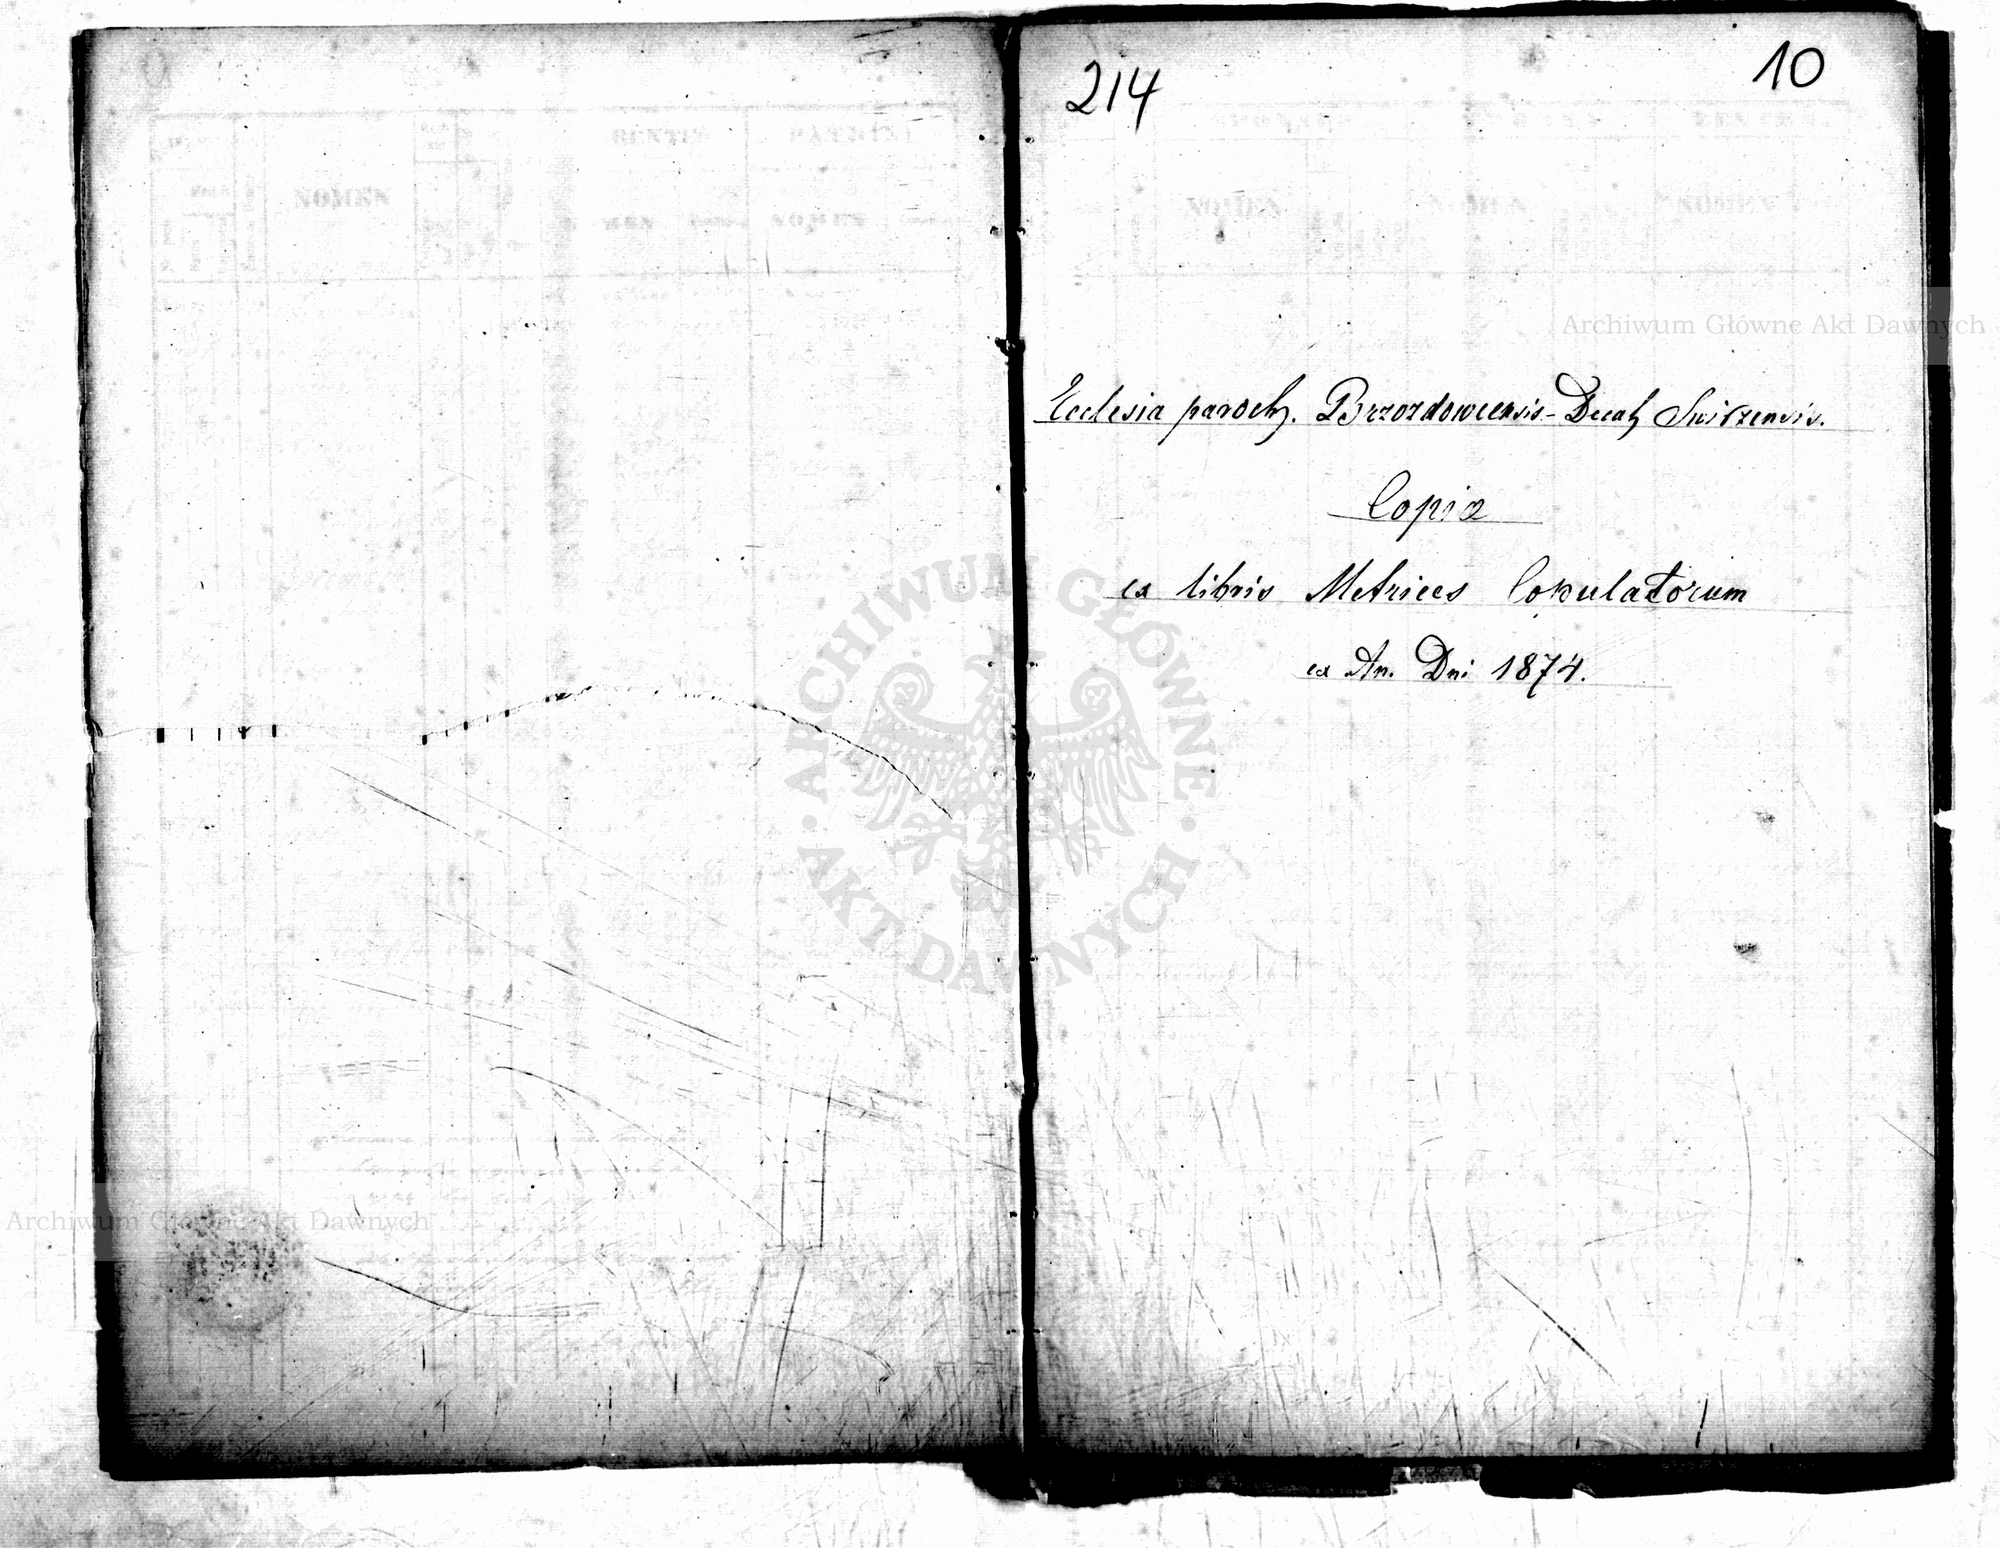 214
10
Archiwum Główne Akt Dawnych
Ecclesia paroch. Brzozdowcensis - Decat Swirzensis.
Copia
ex libris Metrices Copulatorum
ex An. Dni 1874.
ARCHIWUM GŁÓWNE
AKT DAWNYCH
Archiwum Główne Akt Dawnych
NOMEN
NOMEN
NOMEN
NOMEN